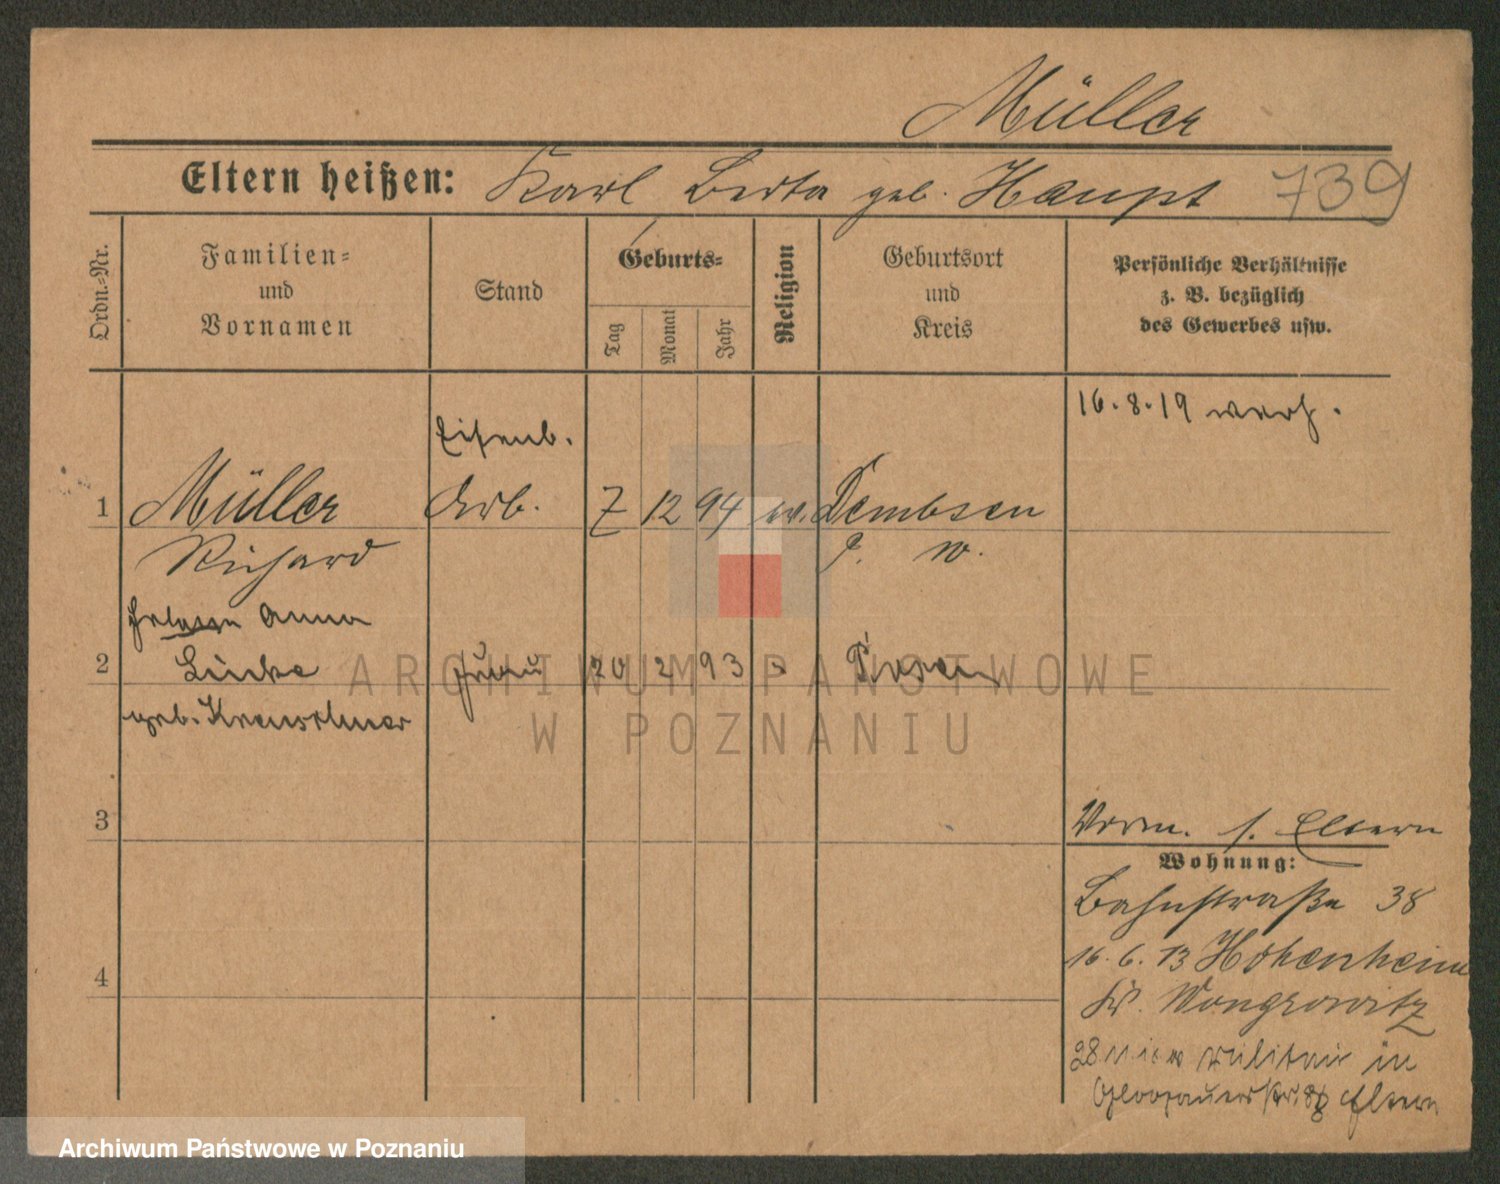 Müller
Eltern heißen: Karl Berta geb. Haupt 739
Ordn.-Nr.
Familien-
und
Vornamen
Stand
Geburts-
Tag
Monat
Jahr
Religion
Geburtsort
und
Kreis
Persönliche Verhältnisse
z. B. bezüglich
des Gewerbes usw.
16.8.19 verh.
Eisenb.
1 Müller Arb. 7 12 94 ev. Dembsen
Richard P. W.
Anna
2 frau 20 2 93 Posen
geb.
ARCHIWUM PAŃSTWOWE
W POZNANIU
3
Vorm. s. Eltern
Wohnung:
Bahnstraße 38
16.6.13 Hohenheim
Kr. Wongrowitz
4
28 Militair in
Glogauerstr. Eltern
Archiwum Państwowe w Poznaniu